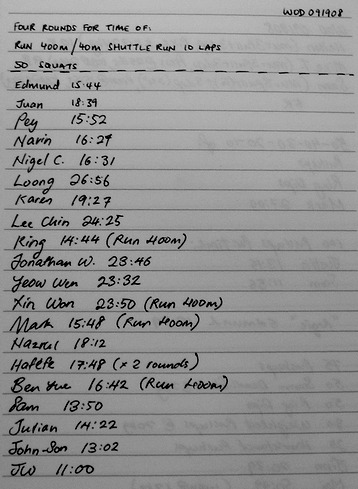 WOD 091908
FOUR ROUNDS FOR TIME OF:
RUN 400M / 40M SHUTTLE RUN 10 LAPS
50 SQUATS
Edmund 15:44
Juan 18:39
Pey 15:52
Navin 16:27
Nigel C. 16:31
Loong 26:56
Karen 19:27
Lee Chin 24:25
King 14:44 (Run 400m)
Jonathan W. 23:46
Yeow Wen 23:32
Xin Wan 23:50 (Run 400m)
Mark 15:48 (Run 400m)
Nazrul 18:12
17:48 (x 2 rounds)
Ben Yue 16:42 (Run 400m)
Sam 13:50
Julian 14:22
John-Son 13:02
JW 11:00